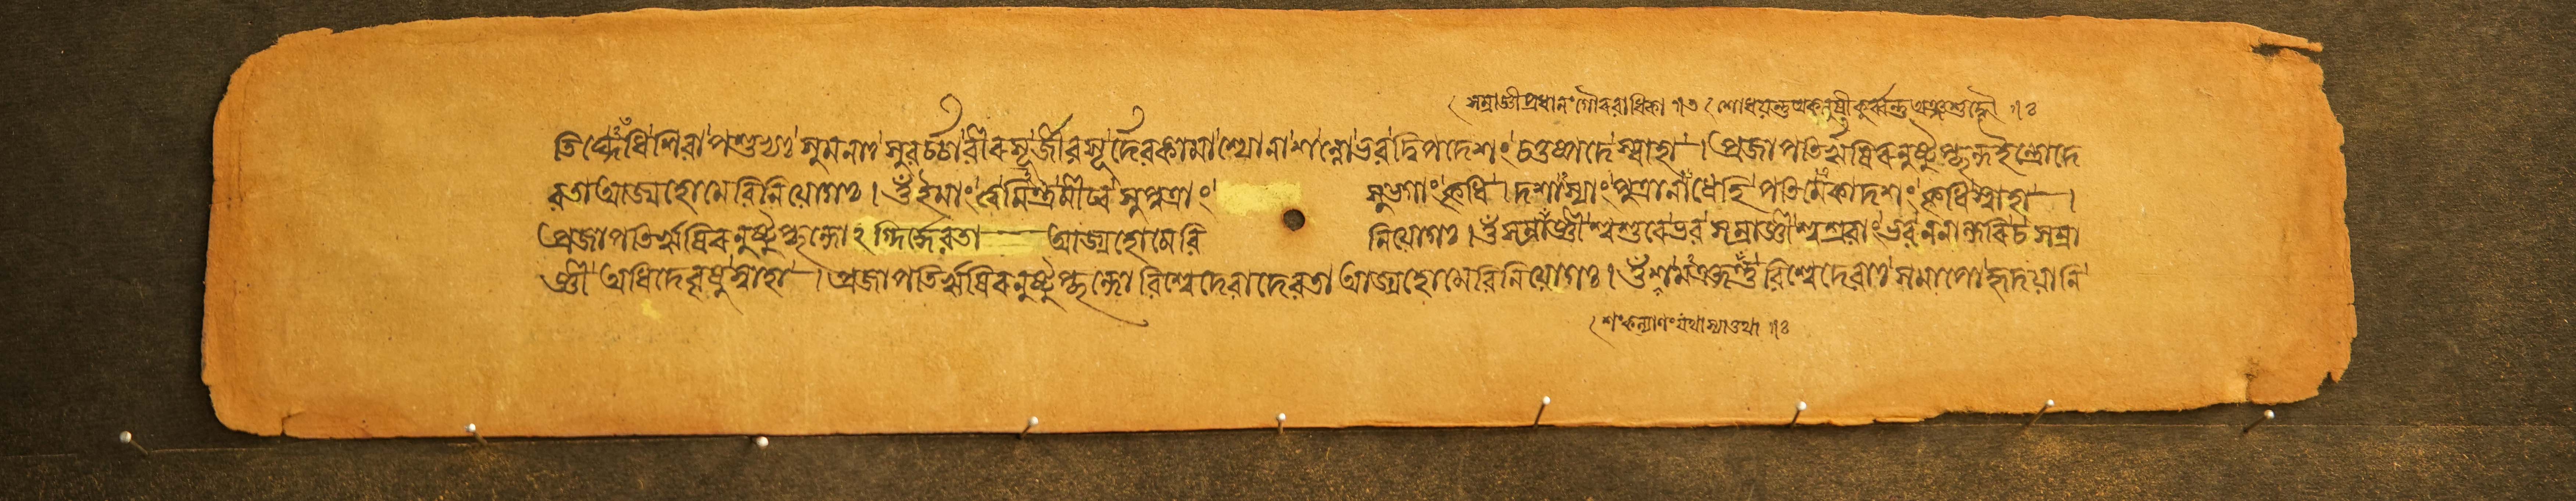 সম্রাজ্ঞী প্রধান গৌরবাধিকা ॥৩
তিঘ্ন্যেধি শিবা পশুভ্যঃ সুমনাঃ সুবর্চ্চা বীরসূর্জীবসূর্দেবকামা স্যোনা শন্নো ভব দ্বিপদে শং চতুষ্পদে স্বাহা । প্রজাপতিরৃষিরনুষ্টুপ্ছন্দ ইন্দ্রো দে
বতা আজ্যহোমে বিনিয়োগঃ । ওঁ ইমাং ত্বমিন্দ্র মীঢ্ব সুপুত্রাং সুভগাং কৃধি । দশাস্যাং পুত্রানাধেহি পতিমেকাদশং কৃধি স্বাহা ।
প্রজাপতিরৃষিরনুষ্টুপ্ছন্দোঽগ্নির্দেবতা আজ্যহোমে বিনিয়োগঃ । ওঁ সম্রাজ্ঞী শ্বশুরে ভব সম্রাজ্ঞী শ্বশ্রবাং ভব ননান্দরি চ সম্রা
জ্ঞী অধিদেবৃষু স্বাহা । প্রজাপতিরৃষিরনুষ্টুপ্ছন্দো বিশ্বেদেবা দেবতা আজ্যহোমে বিনিয়োগঃ । ওঁ সমঞ্জন্তু বিশ্বেদেবাঃ সমাপো হৃদয়ানি
শং কল্যাণং যথা স্যাত্তথা ॥৪